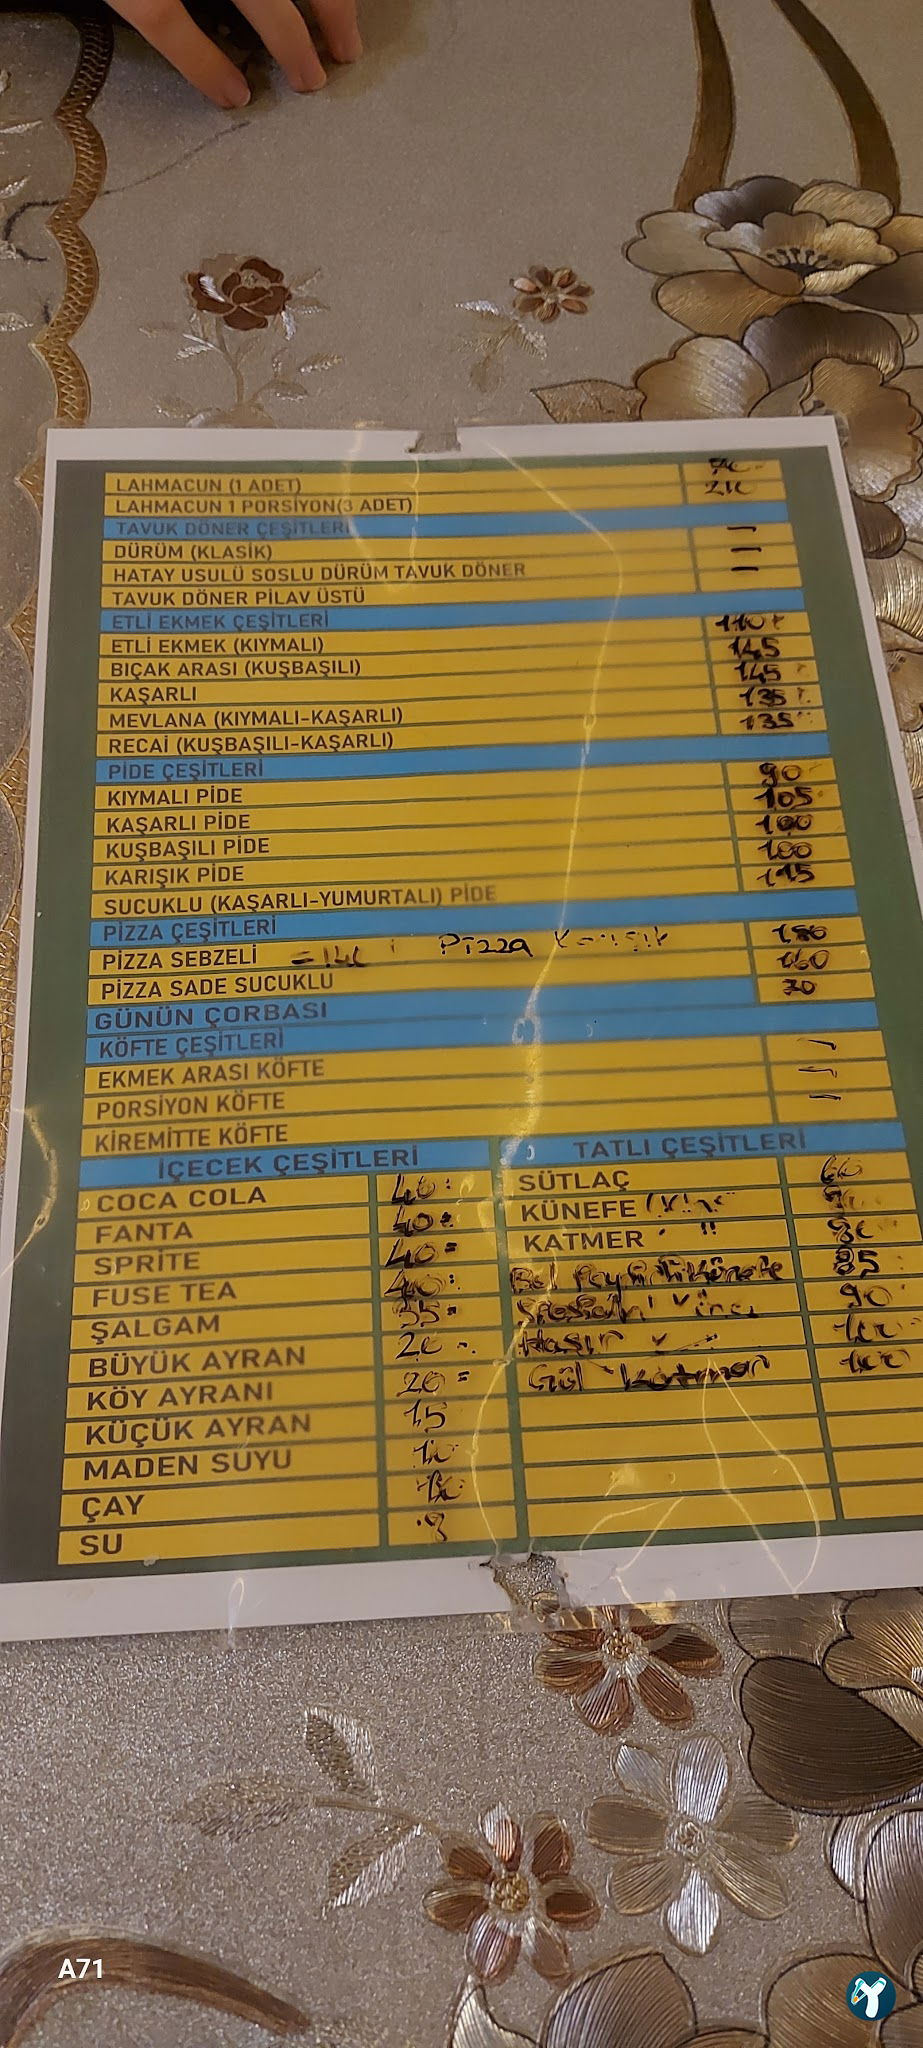 LAHMACUN (1 ADET) 70
LAHMACUN 1 PORSİYON(3 ADET) 210
TAVUK DÖNER ÇEŞİTLERİ
DÜRÜM (KLASİK) —
HATAY USULÜ SOSLU DÜRÜM TAVUK DÖNER —
TAVUK DÖNER PİLAV ÜSTÜ —
ETLİ EKMEK ÇEŞİTLERİ
ETLİ EKMEK (KIYMALI) 110
BIÇAK ARASI (KUŞBAŞILI) 145
KAŞARLI 145
MEVLANA (KIYMALI-KAŞARLI) 135
RECAİ (KUŞBAŞILI-KAŞARLI) 135
PİDE ÇEŞİTLERİ
KIYMALI PİDE 90
KAŞARLI PİDE 105
KUŞBAŞILI PİDE 100
KARIŞIK PİDE 100
SUCUKLU (KAŞARLI-YUMURTALI) PİDE 115
PİZZA ÇEŞİTLERİ
PİZZA SEBZELİ Pizza Karışık
PİZZA SADE SUCUKLU 160
GÜNÜN ÇORBASI 30
KÖFTE ÇEŞİTLERİ
EKMEK ARASI KÖFTE —
PORSİYON KÖFTE —
KİREMİTTE KÖFTE —
İÇECEK ÇEŞİTLERİ
COCA COLA 40
FANTA 40
SPRİTE 40
FUSE TEA 40
ŞALGAM 35
BÜYÜK AYRAN 20
KÖY AYRANI 20
KÜÇÜK AYRAN 15
MADEN SUYU 10
ÇAY
SU
TATLI ÇEŞİTLERİ
SÜTLAÇ 60
KÜNEFE
KATMER "
Bol Peynirli Künefe 85
90
Hasır 100
Gül Katmer 100
A71